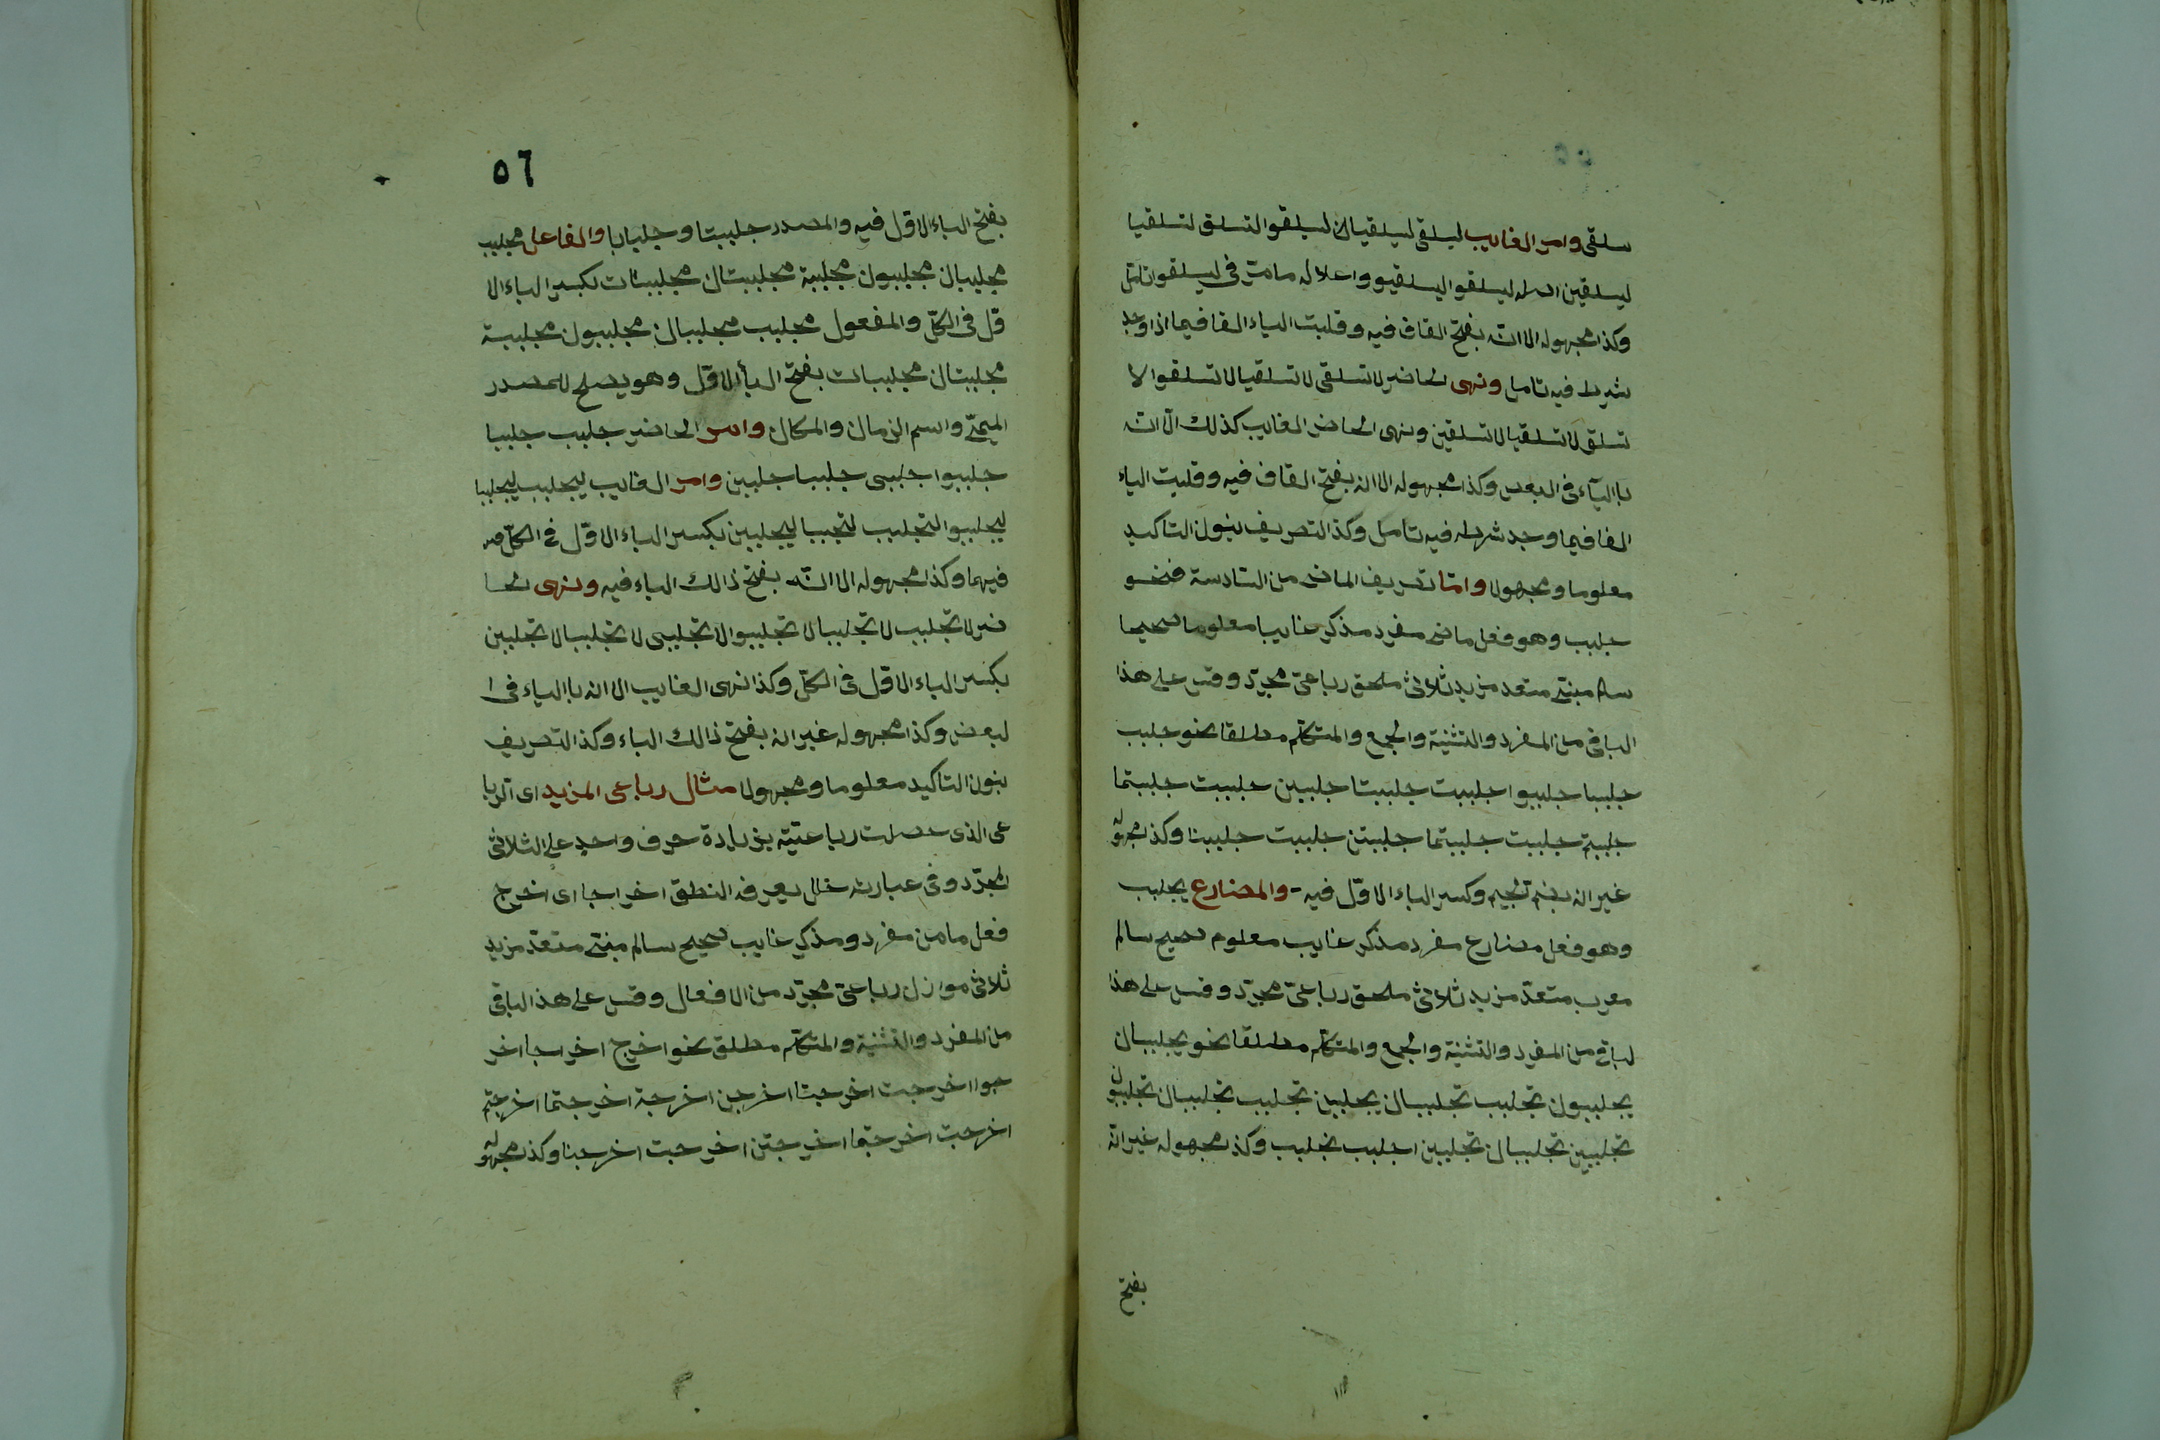 سلقى وامر الغايب ليسلقى ليسلقيا ليسلقوا لتسلق لتسلقيا
ليسلقين اصله ليسلقوا ليسلقيو واعلاله مامر في ليسلقو تامل
وكذا مجهوله الا انه بفتح القاف فيه وقلبت الياء الفا فيما اذا وجد
شرط فيه تامل ونهى الحاضر لا تسلقى لا تسلقيا لا تسلقوا لا
تسلق لا تسلقيا لا تسلقين ونهى الحاضر الغايب كذلك الا انه
باالياء فى البعض وكذا مجهوله الا انه بفتح القاف فيه وقلبت الياء
الفا فيما وجد شرطه فيه تامل وكذ التصريف بنون التاكيد
معلوما ومجهولا واما تصريف الماضى من السادسة فنحو
جلبب وهو فعل ماضى مفرد مذكر غايب معلوما صحيحا
سالم مبنى متعد مزيد ثلاثى ملحق رباعى مجرد وقس على هذا
الباقى من المفرد والتثنية والجمع والمتكلم مطلقا نحو جلبب
جلببا جلببوا جلببت جلببتا جلببن جلببت جلببتما
جلببتم جلببت جلببتما جلببتن جلببت جلببنا وكذ مجهوله
غير انه بضم الجيم وكسر الباء الاول فيه والمضارع يجلبب
وهو فعل مضارع مفرد مذكر غايب معلوم صحيح سالم
معرب متعد مزيد ثلاثى ملحق رباعى مجرد وقس على هذا
لباقى من المفرد والتثنية والجمع والمتكلم مطلقا نحو يجلببان
يجلببون تجلبب تجلببان يجلببن تجلبب تجلببان تجلببون
تجلببين تجلببان تجلببن اجلبب نجلبب وكذ مجهوله غير انه
بفتح
٥٦
بفتح الباء الاول فيه والمصدر جلببتا وجلبابا والفاعل مجلبب
مجلببان مجلببون مجلببة مجلببتان مجلببات بكسر الباء الا
ول فى الكل والمفعول مجلبب مجلببان مجلببون مجلببة
مجلببتان مجلببات بفتح البأ الاول وهو يصلح للمصدر
الميمى واسم الزمان والمكان وامر الحاضر جلبب جلببا
جلببوا جلببى جلببا جلببن وامر الغايب ليجلبب ليجلببا
ليجلببوا لتجلبب لتجببا ليجلببن بكسر الباء الاول فى الكل
فيهما وكذا مجهوله الا انه بفتح ذالك الباء فيه ونهى لحا
ضر لا تجلبب لا تجلببا لا تجلببوا لا تجلببى لا تجلببا لا تجلببن
بكسر الباء الاول فى الكل وكذا نهى الغايب الا انه باالياء فى ا
لبعض وكذا مجهوله غير انه بفتح ذالك الباء وكذ التصريف
بنون التاكيد معلوما ومجهولا مثال رباعى المزيد اى الربا
عى الذى حصلت رباعيته بزيادة حرف واحد على الثلاثى
لمجرد وفى عبارته خلل يعرفه النطق اخراجا اى اخرج
فعل مامن مفرد ومذكر غايب صحيح سالم مبنى متعد مزيد
ثلاثى موازن رباعى مجرد من الافعال وقس على هذ الباقى
من المفرد والتثنية والمتكلم مطلق نحو اخرج اخراجا اخر
جوا اخرجت اخرجتا اخرجن اخرجة اخرجتما اخرجتم
اخرجت اخرجتما اخرجتن اخرجت اخرجنا وكذ مجهوله